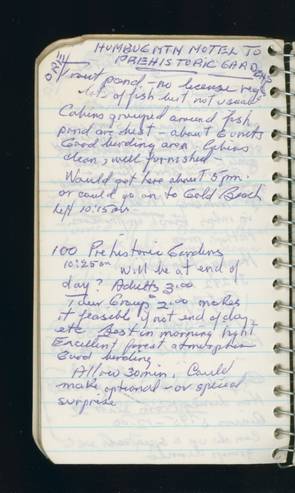 HUMBUG MTN MOTEL TO
PREHISTORIC GARDENS
ORE
Trout pond - no license req
lots of fish but not usual
Cabins grouped around fish
pond are best - about 6 units
Good birding area. Cabins
clean, well furnished -
Would get here about 5 pm.
or could go on to Gold Beach
left 10:15 am
100 Prehistoric Gardens
10:25 am Will be at end of
day? Adults 3.00
Tour Group 2.00 makes
it feasible if not end of day
etc Best in morning light
Excellent forest atmosphere
Good birding
Allow 30 min. Could
make optional - or special
surprise